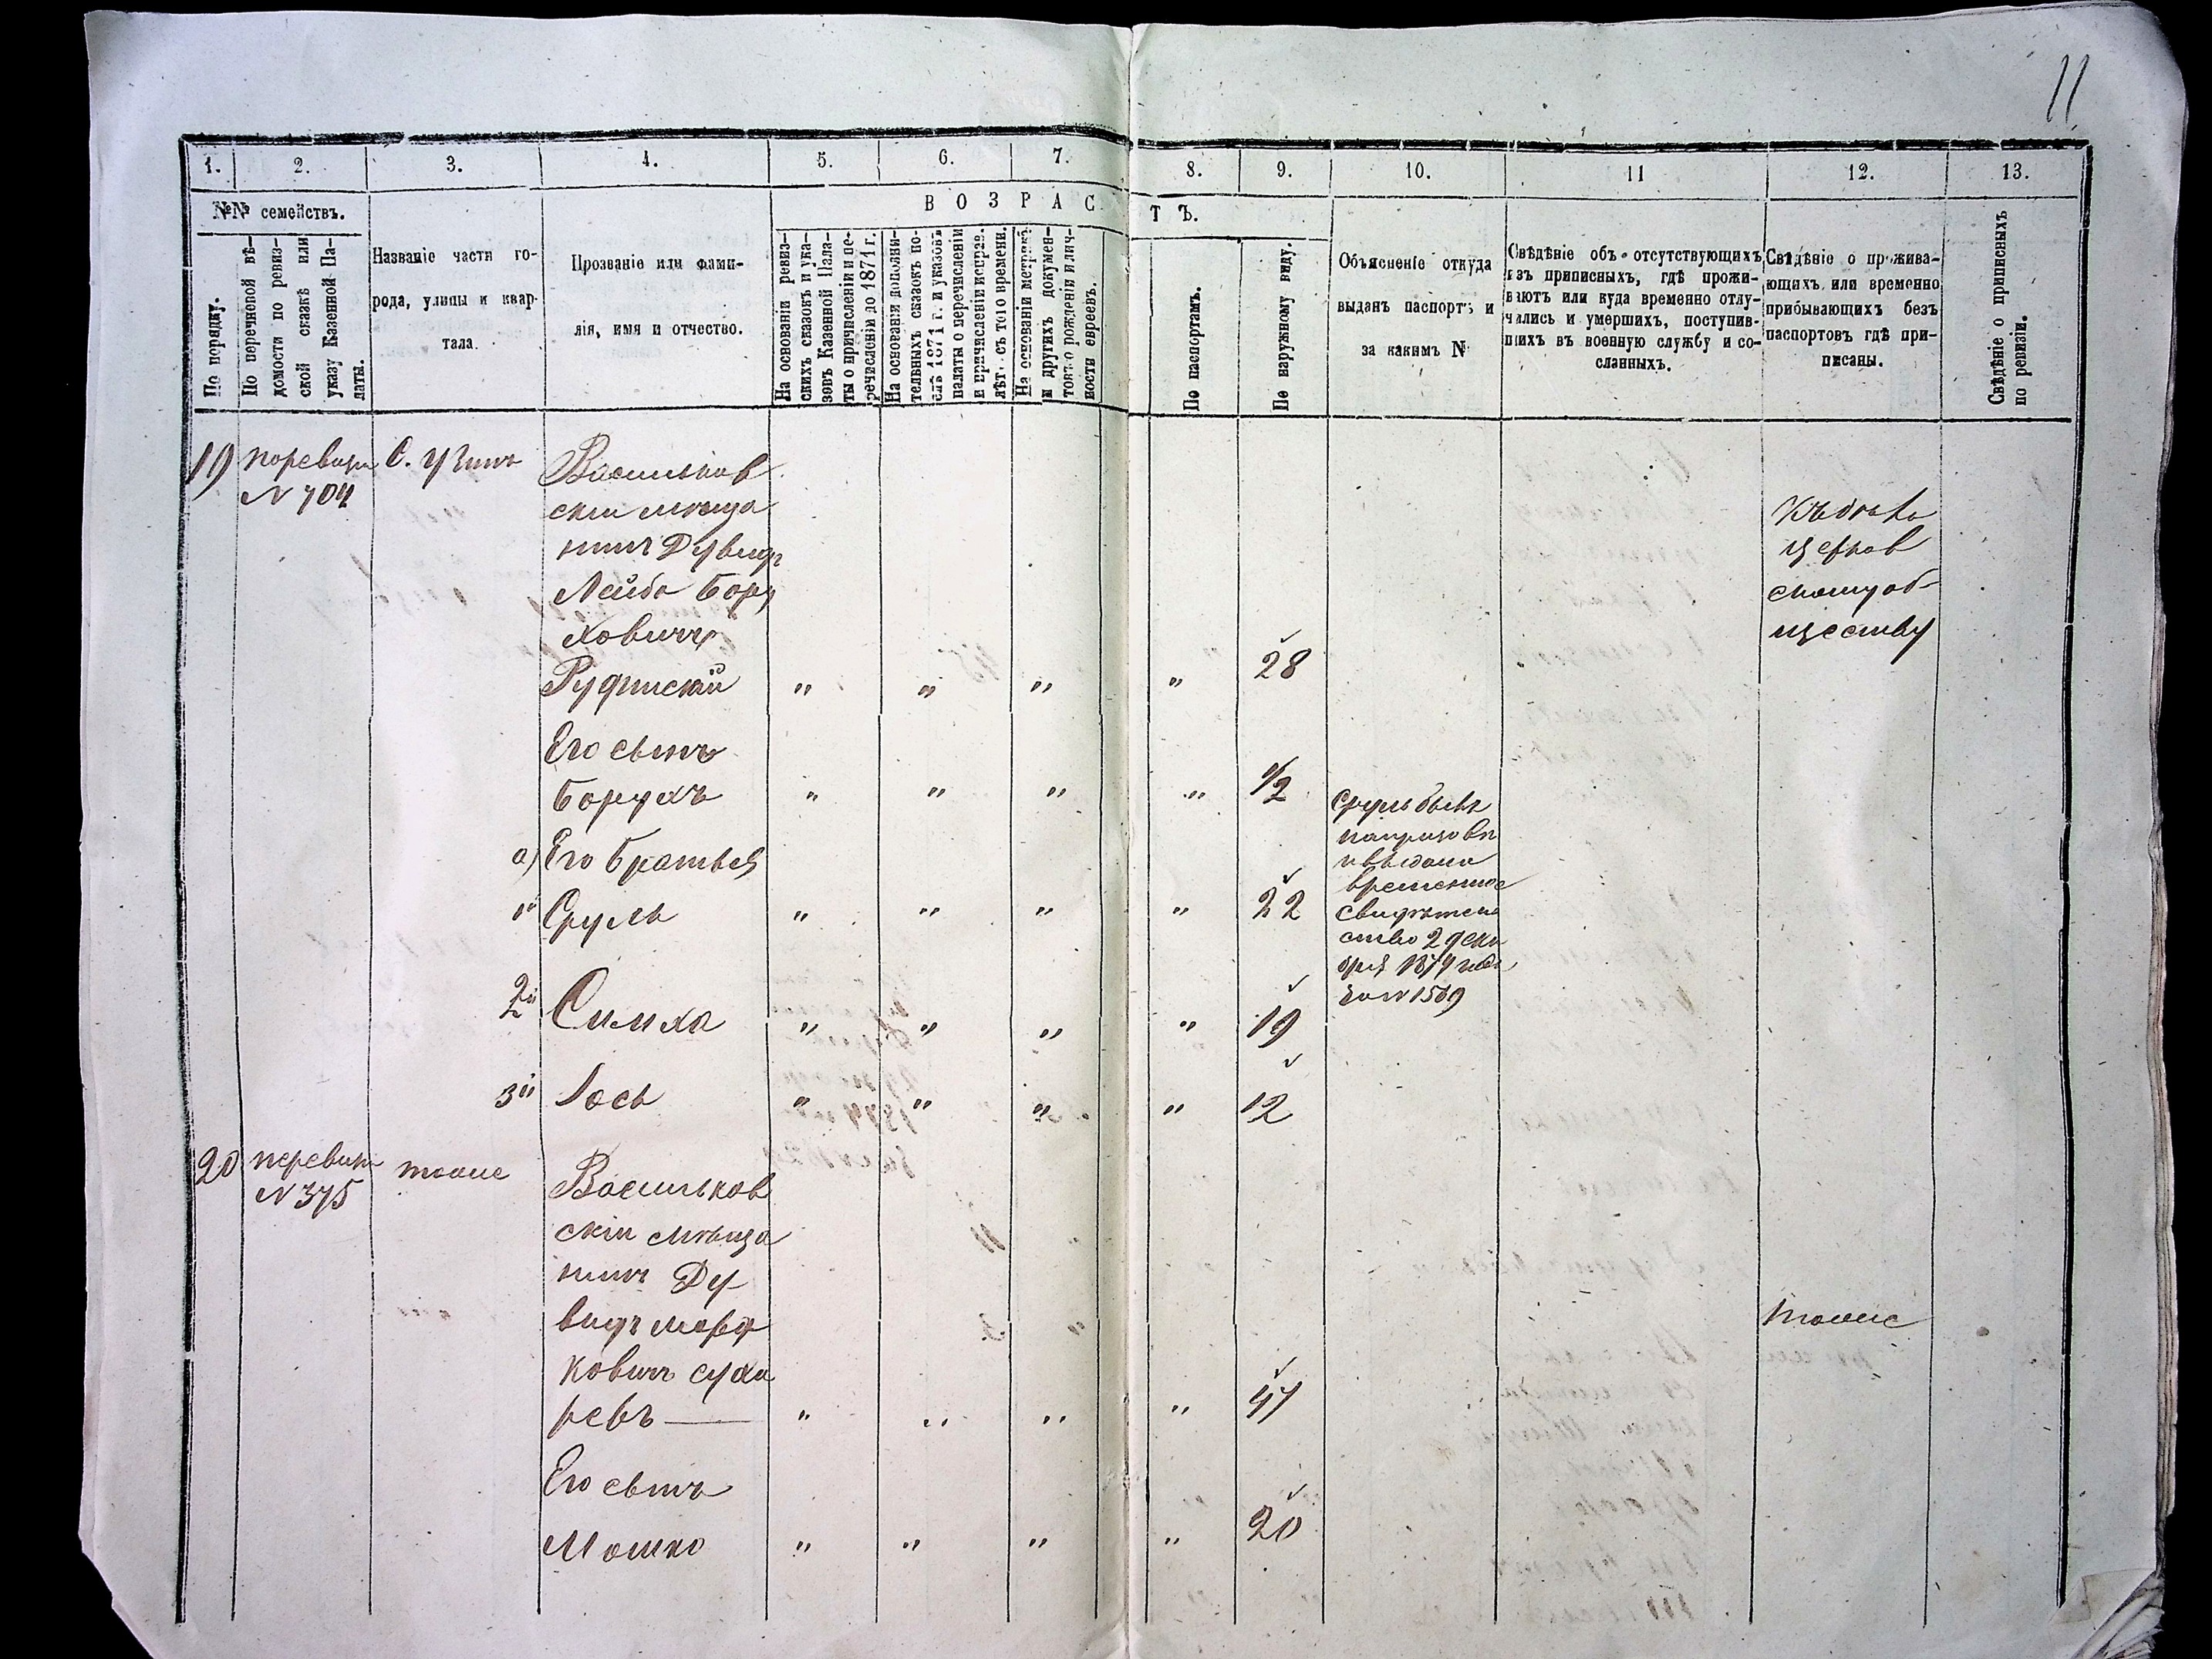 11
1. 2. 3. 4. 5. 6. 7. 8. 9. 10. 11 12. 13.
№№ семействъ.
По порядку.
По перечневой вѣ-
домости по ревиз-
ской сказкѣ или
указу Казенной Па-
латы.
Названіе части го-
рода, улицы и квар-
тала.
Прозваніе или фами-
лія, имя и отчество.
ВОЗРАСТЪ.
На основаніи ревиз-
скихъ сказокъ и ука-
зовъ Казенной Пала-
ты о причисленіи и пе-
речисленіи до 1871 г.
На основаніи дополни-
тельныхъ сказокъ по-
слѣ 1871 г. и указовъ
палаты о перечисленіи
и причисленіи исправ.
лѣт. съ того времени.
На основаніи метрикъ
и другихъ докумен-
товъ о рожденіи и лич-
ности евреевъ.
По паспортамъ.
По наружному виду.
Объясненіе откуда
выданъ паспортъ и
за какимъ №
Свѣдѣніе объ отсутствующихъ
изъ приписныхъ, гдѣ прожи-
ваютъ или куда временно отлу-
чились и умершихъ, поступив-
шихъ въ военную службу и со-
сланныхъ.
Свѣдѣніе о прожива-
ющихъ или временно
прибывающихъ безъ
паспортовъ гдѣ при-
писаны.
Свѣдѣніе о приписныхъ
по ревизіи.
19 поревизи С. Узинъ Васильков
N 704
скій мѣща
нинъ Дувидъ
Лейба Бору
ховичъ
Рудинскій " " " " 28
Къ бѣло
церков
скому об-
ществу
Его сынъ
Борухъ " " " " 1/2
а) Его братья
1й Сруль " " " " 22
Сруль былъ
выдано
временное
свидѣтель
ство 2 дека
бря 1874 года
за N 1569
2й Симха " " " " 19
3й Іось " " " " 12
20 поревизи тоже Васильков
N 375
скій мѣща
нинъ Ду
видъ Морд
ковичъ Суха
ревъ " " " " 47
тоже
Его сынъ
Мошко " " " " 20